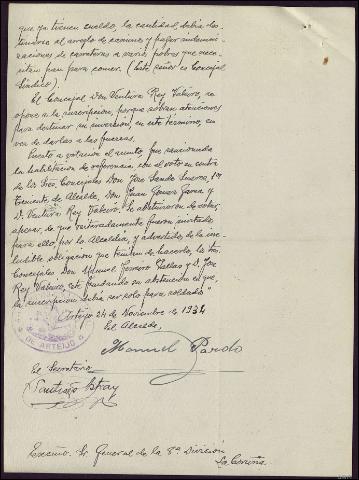 que ya tienen sueldo la cantidad, debía des-
tinarse al arreglo de caminos y pagar indemni-
zaciones de carreteras a varios pobres que nece-
sitan pan para comer. (Este señor es Concejal
Síndico).
El Concejal Don Ventura Rey Tabeiro, se
opone a la suscripción, porque sobran atenciones
para destinar su inversión, en este término, en
vez de darlas a las fuerzas.
Puesto a votación el asunto, fue sancionada
la habilitación de referencia con el voto en contra
de los Sres. Concejales Don José Sande Suevos, 1er
Teniente, de Alcalde, Don Juan Gómez García y
D. Ventura Rey Tabeiro. Se abstuvieron de votar,
apesar, de que reiteradamente fueron invitados
para ello, por la Alcaldía, y advertidos, de la ine-
ludible obligación que tenían de hacerlo, los Sres
Concejales Don Manuel Ferreiro Pallas y D. José
Rey Vabeiro, este fundando su abstención en que
la suscripción debía ser solo para soldados.
Arteijo 24 de Noviembre de 1934
El Alcalde,
DE ARTEIJO
Manuel Pardo
El Secretario
Santiago Astray
Excmo. Sr General de la 8ª División
La Coruña.